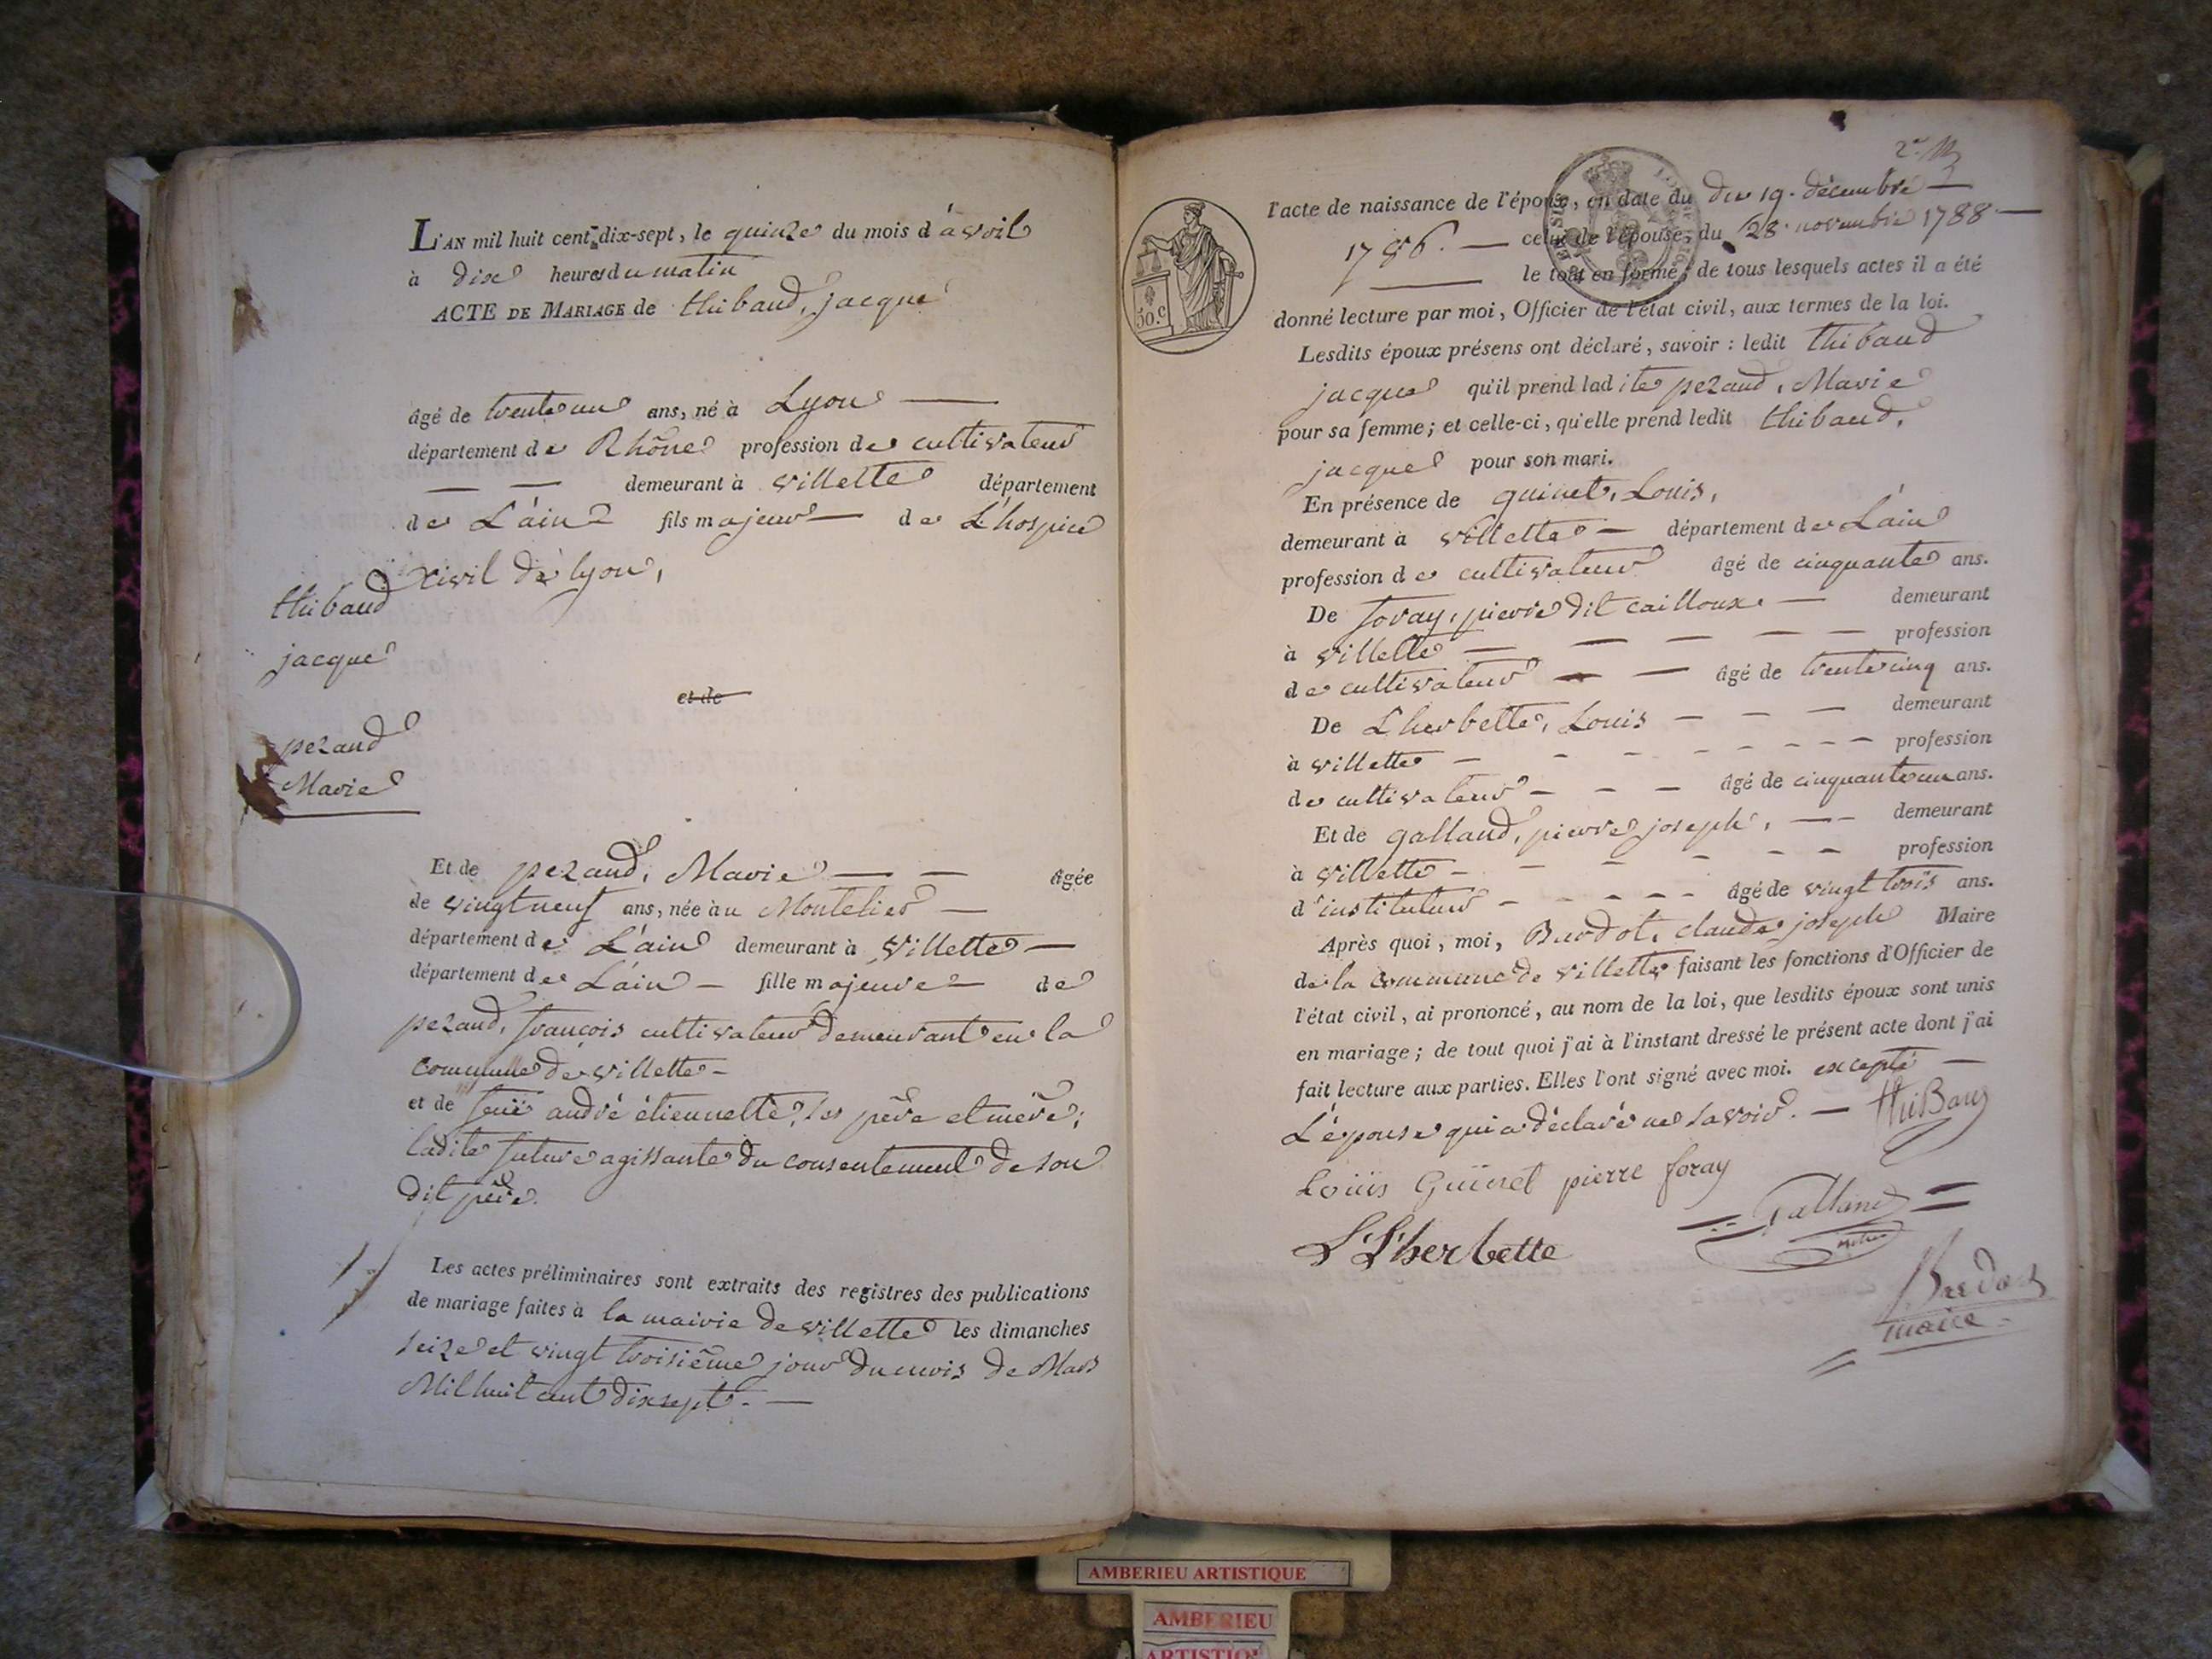 L'AN mil huit cent dix-sept, le quinze du mois d'avril
à dix heures du matin
ACTE DE MARIAGE de thibaud, jacque
âgé de trente un ans, né à Lyon
département de Rhône profession de cultivateur
demeurant à villette département
de L'ain fils majeur de L'hospice
Civil de lyon,
thibaud
jacque
et de
pezaud
Marie
Et de pezaud, Marie âgée
de vingt neuf ans, née au Montelier
département de L'ain demeurant à villette
département de L'ain fille majeure de
pezaud, françois cultivateur demeurant en la
commune de villette
et de feuë andré étiennette, ses père et mère;
ladite future agissante du consentement de son
dit père.
Les actes préliminaires sont extraits des registres des publications
de mariage faites à la mairie de villette les dimanches
seize et vingt troisième jour du mois de Mars
Mil huit cent dix sept.
l'acte de naissance de l'époux, en date du du 19. décembre
1786. celui de l'épouse, du 28. novembre 1788
le tout en forme; de tous lesquels actes il a été
donné lecture par moi, Officier de l'état civil, aux termes de la loi.
50.c
Lesdits époux présens ont déclaré, savoir: ledit thibaud
jacque qu'il prend ladite pezaud, Marie
pour sa femme; et celle-ci, qu'elle prend ledit thibaud,
jacque pour son mari.
En présence de guinet, Louis,
demeurant à villette département de L'ain
profession de cultivateur âgé de cinquante ans.
De foray, pierre dit cailloux demeurant
à villette profession
de cultivateur âgé de trente cinq ans.
De L'herbette, Louis demeurant
à villette profession
de cultivateur âgé de cinquante un ans.
Et de galland, pierre joseph, demeurant
à villette profession
d'instituteur âgé de vingt trois ans.
Après quoi, moi, Burdot, claude joseph Maire
de la commune de villette faisant les fonctions d'Officier de
l'état civil, ai prononcé, au nom de la loi, que lesdits époux sont unis
en mariage; de tout quoi j'ai à l'instant dressé le présent acte dont j'ai
fait lecture aux parties. Elles l'ont signé avec moi. excepté
L'épouse qui a déclaré ne savoir. thiBaud
Loüis Guinet pierre foray
Galland
L. L'herbette
Burdot
maire
AMBERIEU ARTISTIQUE
AMBERIEU
ARTISTIQUE